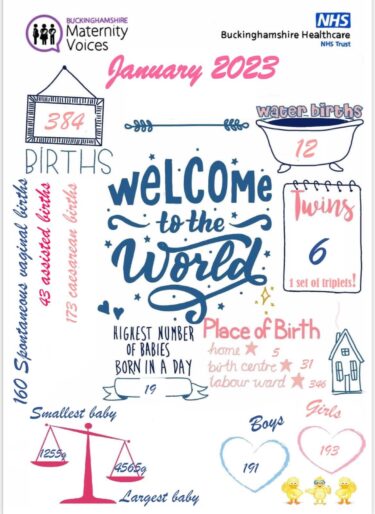 BUCKINGHAMSHIRE
Maternity
Voices
NHS
Buckinghamshire Healthcare
NHS Trust
January 2023
384
BIRTHS
water births
12
160 Spontaneous vaginal births
43 assisted births
173 caesarean births
WELCOME
to the
World
Twins
6
1 set of triplets!
HIGHEST NUMBER
OF BABIES
BORN IN A DAY
19
Place of Birth
home 5
birth centre 31
labour ward 346
Smallest baby
1255g
4565g
Largest baby
Boys
191
Girls
193